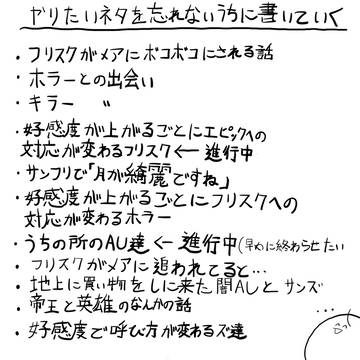 やりたいネタを忘れないうちに書いていく
・フリスクがメアにボコボコにされる話
・ホラーとの出会い
・キラー 〃
・好感度が上がるごとにエピックへの
対応が変わるフリスク←進行中
・サンフリで「月が綺麗ですね」
・好感度が上がるごとにフリスクへの
対応が変わるホラー
・うちの所のAU達←進行中(早めに終わらせたい
・フリスクがメアに追われてると…
・地上に買い物をしに来た闇AUとサンズ
・帝王と英雄のなんかの話 …
・好感度で呼び方が変わるズ達